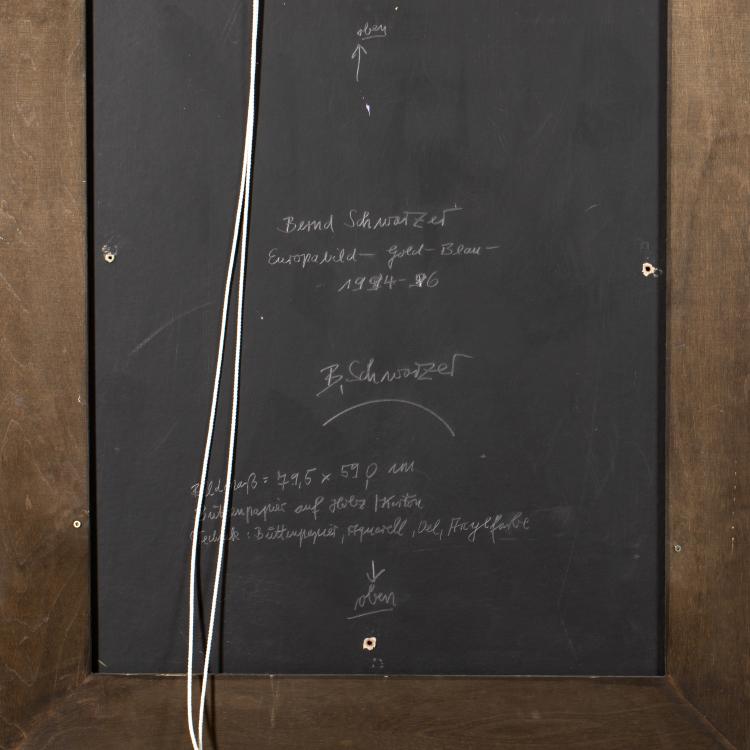 oben
Bernd Schwarzer
Europabild - Gold - Blau -
1994-96
B. Schwarzer
Bildmaß = 79,5 x 59,0 cm
Büttenpapier auf Holz / Karton
Technik: Büttenpapier, Aquarell, Oel, Acrylfarbe
oben